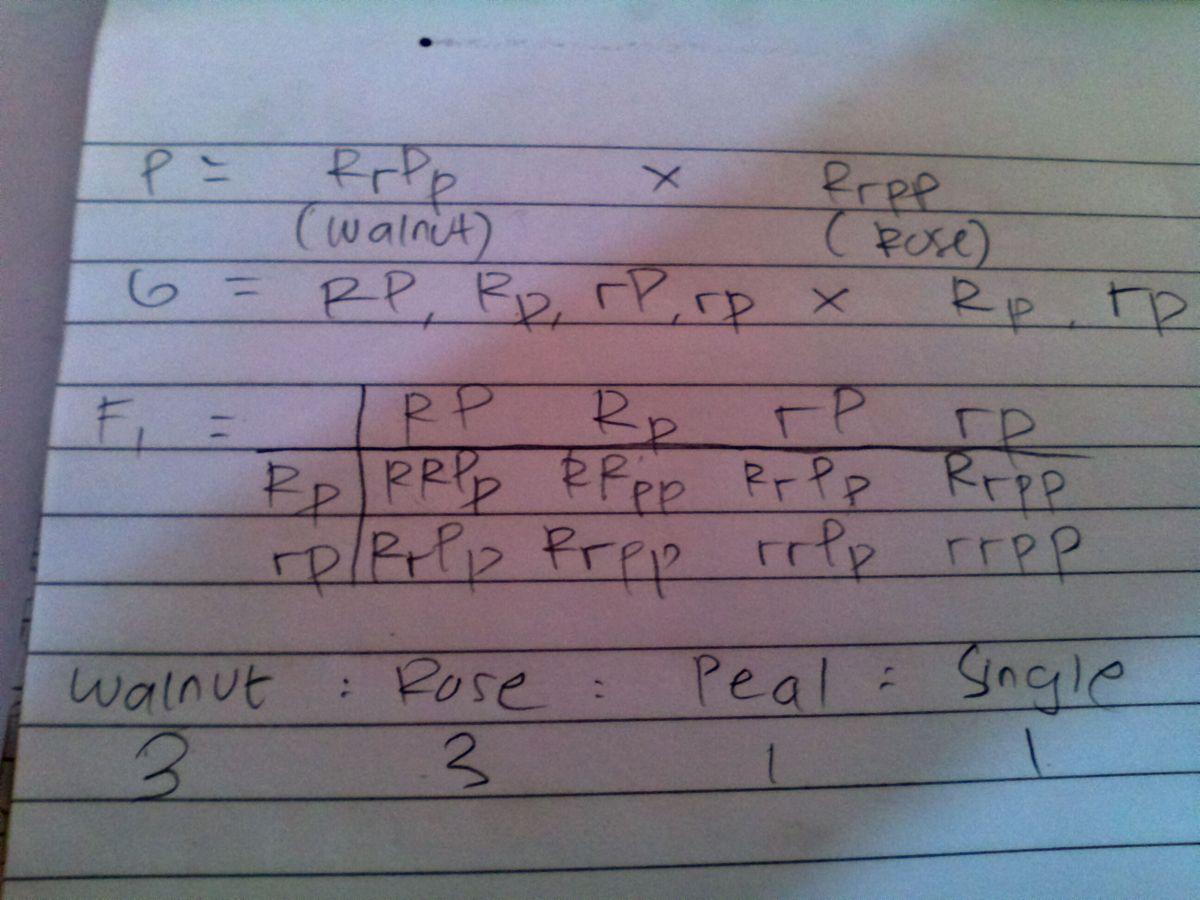 P = RrPp × Rrpp
(walnut) (Rose)
G = RP, Rp, rP, rp × Rp, rp
F1 = RP Rp rP rp
Rp RRPp RRpp RrPp Rrpp
rp RrPp Rrpp rrPp rrpp
Walnut : Rose : Peal : Single
3 3 1 1